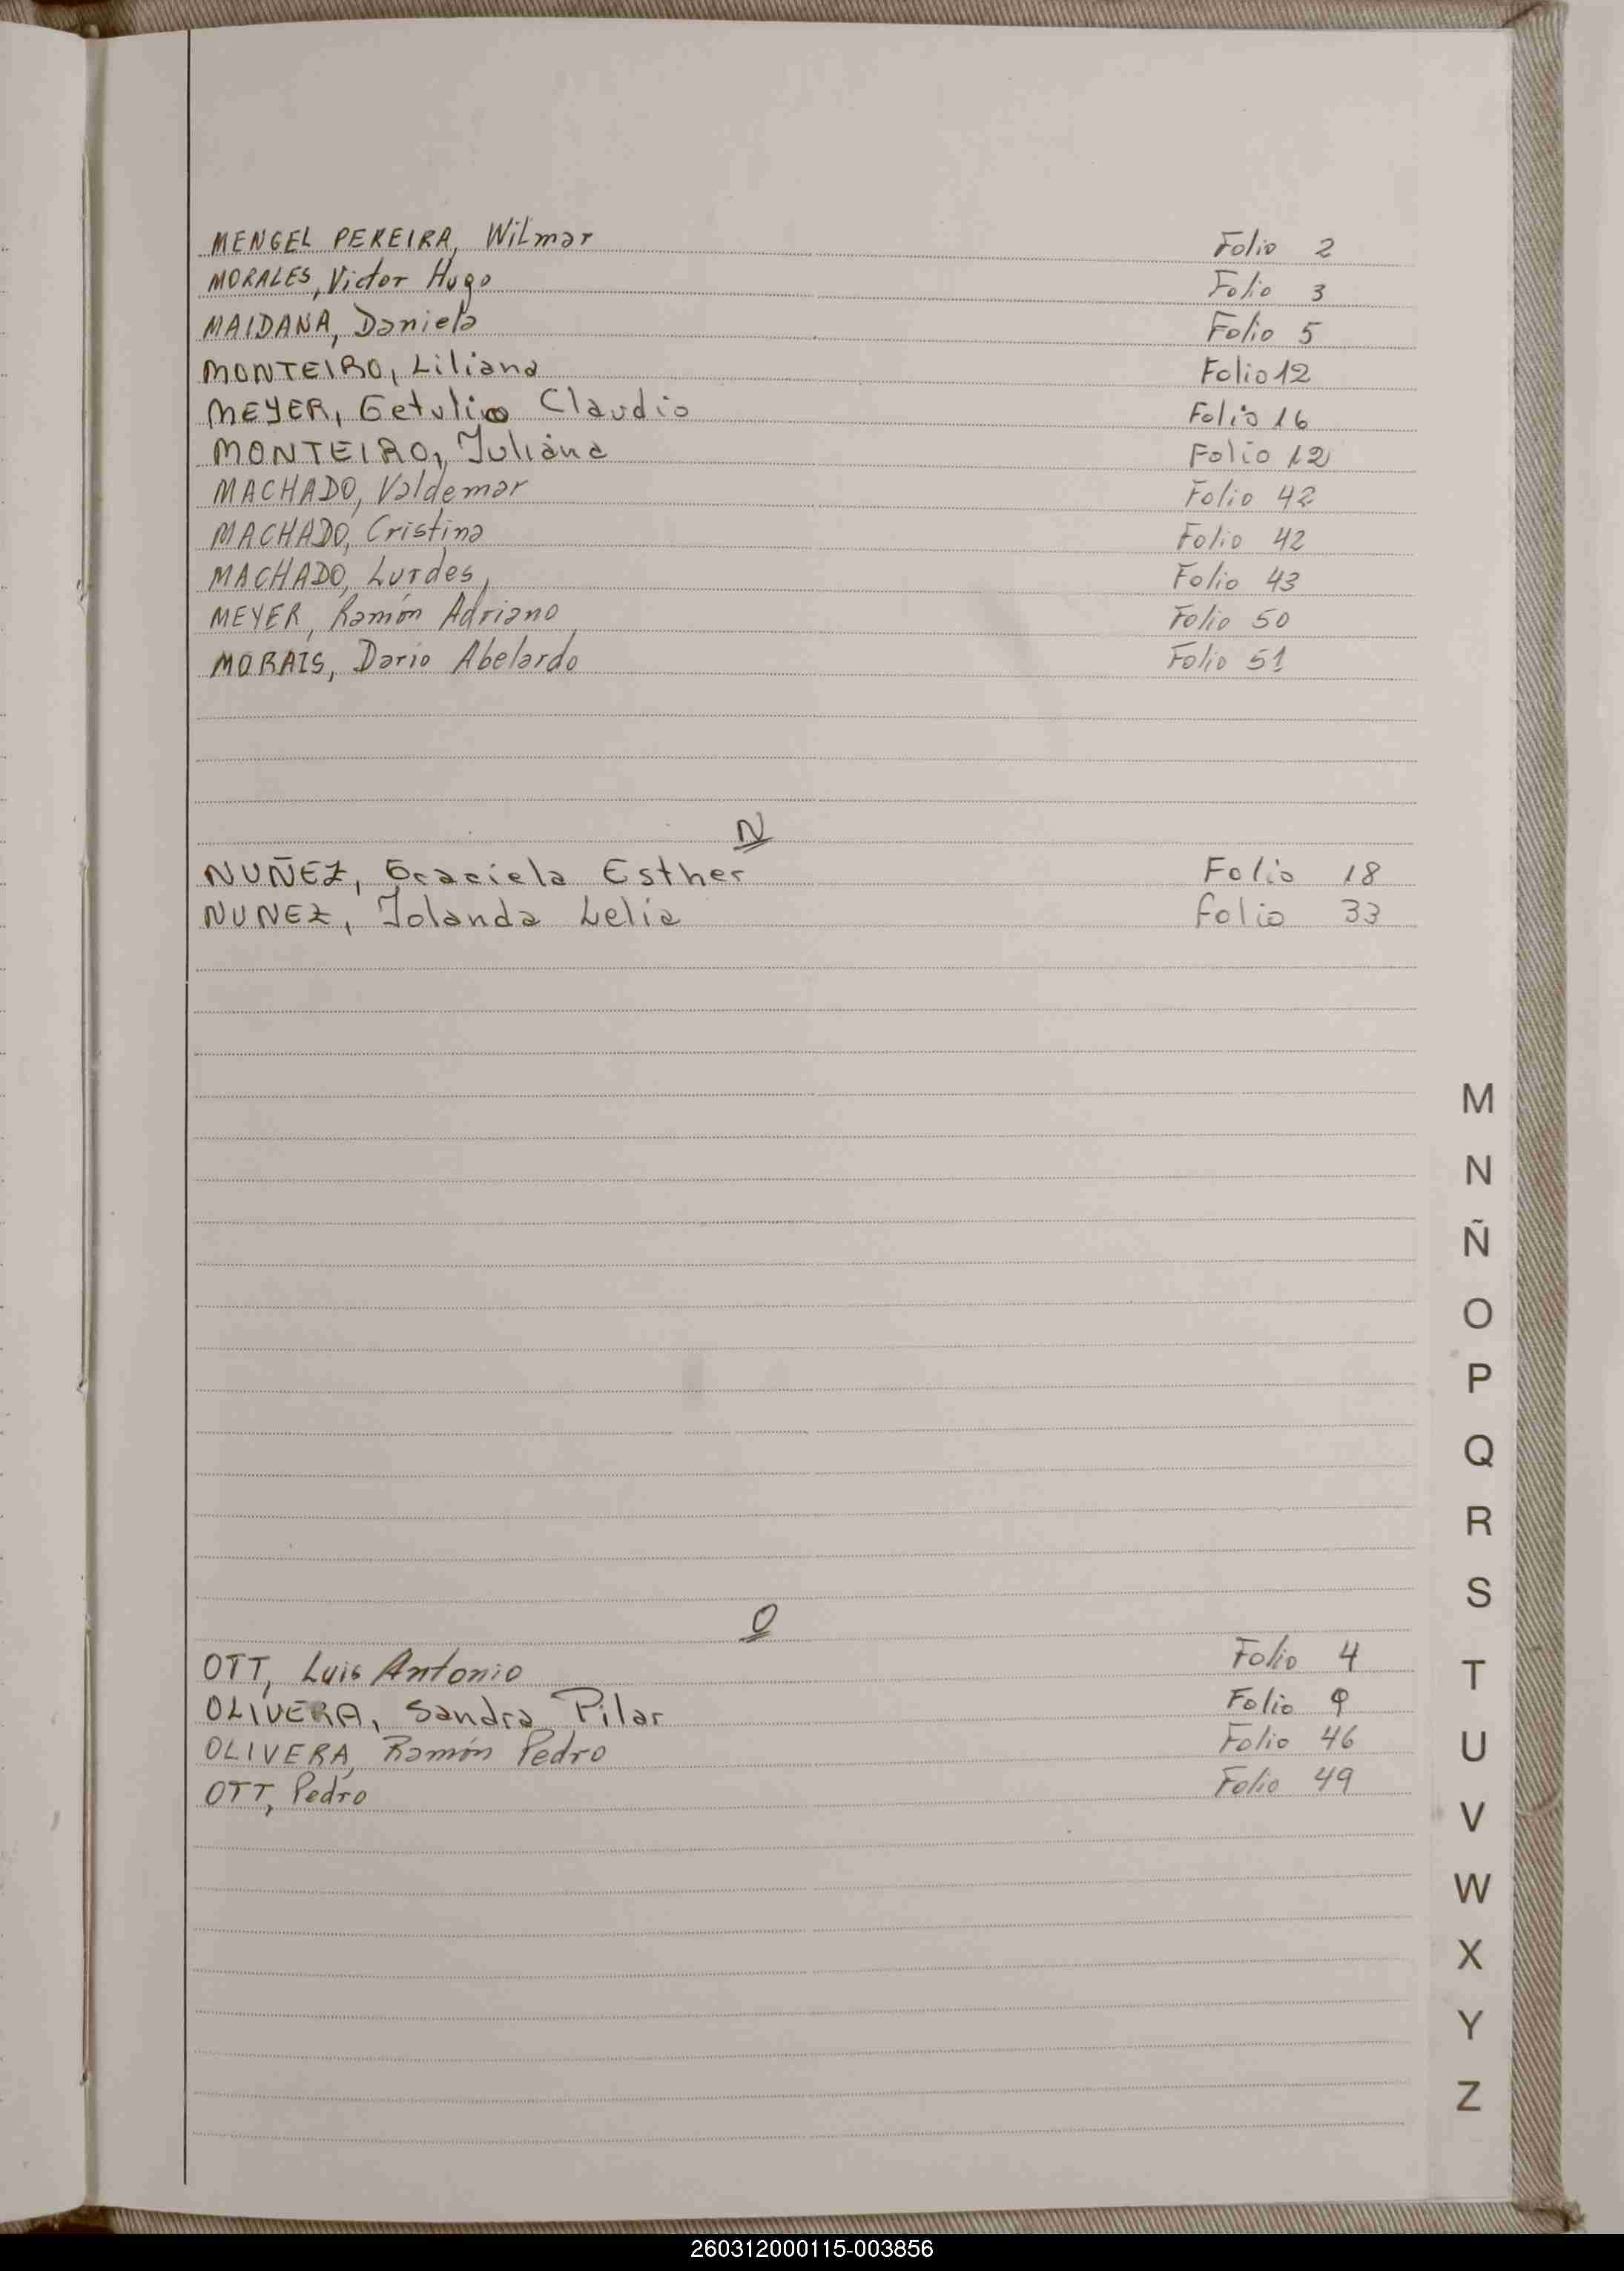 MENGEL PEREIRA, Wilmar Folio 2
MORALES, Victor Hugo Folio 3
MAIDANA, Daniela Folio 5
MONTEIRO, Liliana Folio 12
MEYER, Getulio Claudio Folio 16
MONTEIRO, Juliana Folio 12
MACHADO, Valdemar Folio 42
MACHADO, Cristina Folio 42
MACHADO, Lurdes, Folio 43
MEYER, Ramón Adriano Folio 50
MORAIS, Dario Abelardo Folio 51
N
NUÑEZ, Graciela Esther Folio 18
NUNEZ, Iolanda Lelia folio 33
O
OTT, Luis Antonio Folio 4
OLIVERA, Sandra Pilar Folio 9
OLIVERA, Ramón Pedro Folio 46
OTT, Pedro Folio 49
M
N
Ñ
O
P
Q
R
S
T
U
V
W
X
Y
Z
260312000115-003856